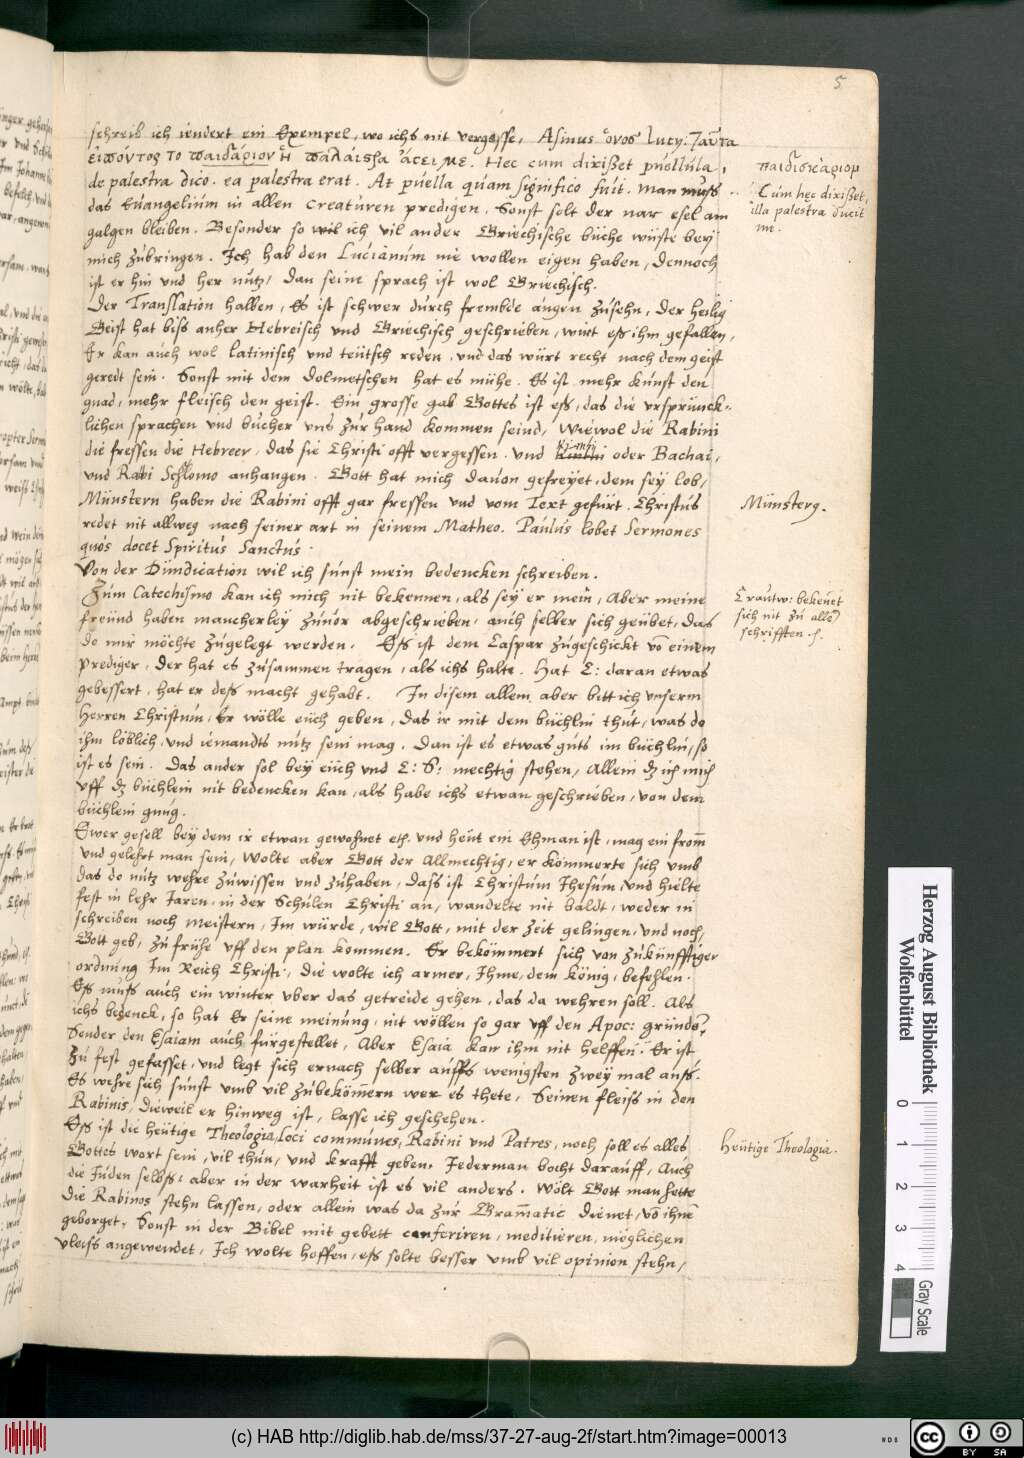 5
schreib ich iendert ein Exempel, wo ichs nit vergesse, Asinus ὄνος Lucy: Ταῦτα
εἰπόντος το παιδάριον ἡ παλάιστρα ἄσει με. Hec cum dixißet puellula,
de palestra dico. ea palestra erat. At puella quam significo fuit. Man muß
das Euangelium in allen creaturen predigen. Sonst solt der nar esel am
galgen bleiben. Besonder so wil ich vil ander Griechische büche wüste bey
mich zubringen. Ich hab den Lucianum nie wollen eigen haben, dennoch
ist er hin und her nutz, dan seine sprach ist wol Griechisch.
Der Translation halben, Es ist schwer durch frembde augen zusehn, der heilig
Geist hat biss anher Hebreisch und Griechisch geschrieben, wirt eß ihm gefallen,
Er kan auch wol latinisch und teutsch reden, und das würt recht nach dem geist
geredt sein. Sonst mit dem dolmetschen hat es mühe. Es ist mehr kunst den
gnad, mehr fleisch den geist. Ein grosse gab Gottes ist eß, das die vrsprunck-
lichen sprachen und bücher uns zur hand kommen seind, Wiewol die Rabini
die fressen die Hebreer, das sie Christi offt vergessen. und Kimhi oder Bachai,
und Rabi Schlomo anhangen. Gott hat mich dauon gefreyet, dem sey lob,
Münstern haben die Rabini offt gar fressen und vom Text gefürt. Christus
redet nit allweg nach seiner art in seinem Matheo. Paulus lobet Sermones
quos docet Spiritus Sanctus.
Von der Diiudication wil ich sunst mein bedencken schreiben.
Zum Catechismo kan ich mich nit bekennen, als sey er mein, Aber meine
freund haben mancherley zuuor abgeschrieben, auch selber sich geübet, das
do mir möchte zugelegt werden. Eß ist dem Caspar zugeschickt vō einem
prediger, der hat es zusammen tragen, als ichs halte. Hat C: daran etwas
gebessert, hat er deß macht gehabt. In disem allem aber bitt ich vnserm
Herren Christum, Er wölle euch geben, das ir mit dem büchlin thut, was do
ihm löblich, und iemandts nutz sein mag. Dan ist es etwas guts im büchlin, so
ist es sein. Das ander sol bey euch und C: S: mechtig stehen, Allein dz ich mich
vff dz büchlein nit bedencken kan, als habe ichs etwan geschrieben, von dem
büchlein gnug.
Ewer gesell bey dem ir etwan gewohnet etc. und heut ein Ehman ist, mag ein from̄
und gelehrt man sein, Wolte aber Gott der Allmechtig, er kömmerte sich umb
das do nütz wehre zuwissen und zuhaben, dass ist Christum Jhesum, und hielte
fest in lehr Jaren, in der Schulen Christi an, wandelte nit baldt, weder in
schreiben noch meistern, Im würde, wil Gott, mit der zeit gelingen, und noch,
Gott geb, zu frühe vff den plan kommen. Er bekömmert sich von zukünfftiger
ordnung Im Reich Christi, die wolte ich armer, Ihme, dem könig, befehlen.
Eß muß auch ein winter vber das getreide gehen, das da wehren soll. Als
ichs bedenck, so hat Er seine meinung, nit wöllen so gar vff den Apoc: gründē,
Sonder den Esaiam auch fürgestellet, Aber Esaia kan ihm nit helffen. Er ist
zu fest gefasset, und legt sich ernach selber auffs wenigsten zwey mal auß.
Es wehre sich sunst umb vil zubekömern wer es thete, Seinen fleiss in den
Rabinis, dieweil er hinweg ist, lasse ich geschehen.
Eß ist die heütige Theologia, Loci communes, Rabini und Patres, noch soll es alles
Gottes wort sein, vil thun, und krafft geben, Jederman bocht darauff, Auch
die Juden selbß, aber in der warheit ist es vil anders. Wölt Gott man hette
die Rabinos stehn lassen, oder allein was da zur Gram̄atic dienet, vō ihnē
geborget, Sonst in der Bibel mit gebett conferiren, meditieren, möglichen
vleiß angewendet, Ich wolte hoffen, eß solte besser umb vil opinion stehn,
παιδισκάριον
Cum hęc dixißet,
illa palestra ducit
me.
Münsterg.
Crautw: bekeñet
sich nit zu allē
schrifften .s.
Heütige Theologia.
Herzog August Bibliothek
Wolfenbüttel
0 1 2 3 4
Gray Scale
(c) HAB http://diglib.hab.de/mss/37-27-aug-2f/start.htm?image=00013
WDB
cc BY SA